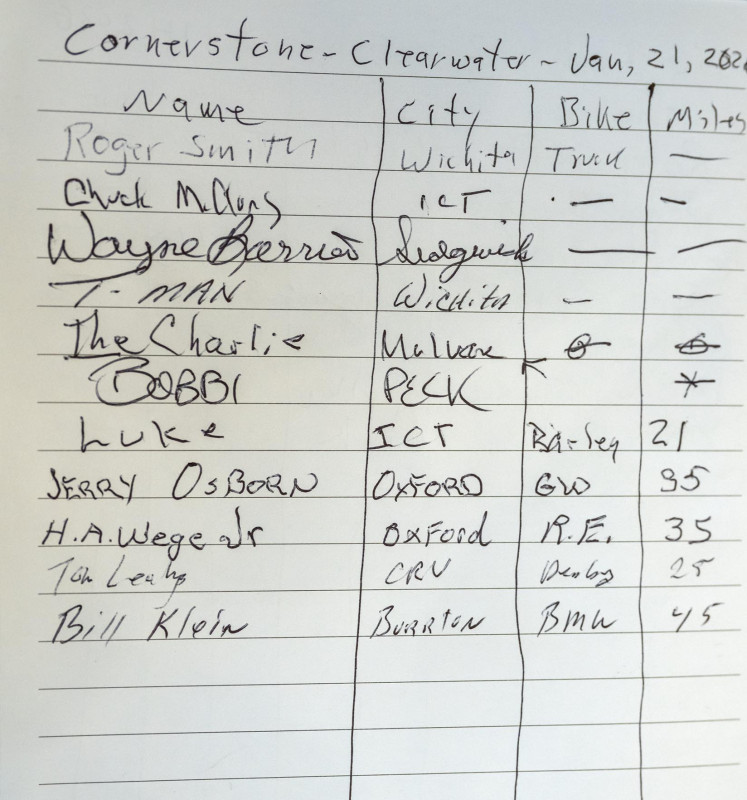 Cornerstone - Clearwater - Jan, 21, 202
Name City Bike Miles
Roger Smith Wichita Truck —
Chuck ICT · — —
Wayne Sedgwick — —
T-MAN Wichita — —
The Charlie Mulvane
BOBBI PECK
Luke ICT 21
JERRY OSBORN OXFORD GW 95
H.A. Wege Jr Oxford R.E. 35
Tom CRV 25
Bill Klein BURRTON BMW 45